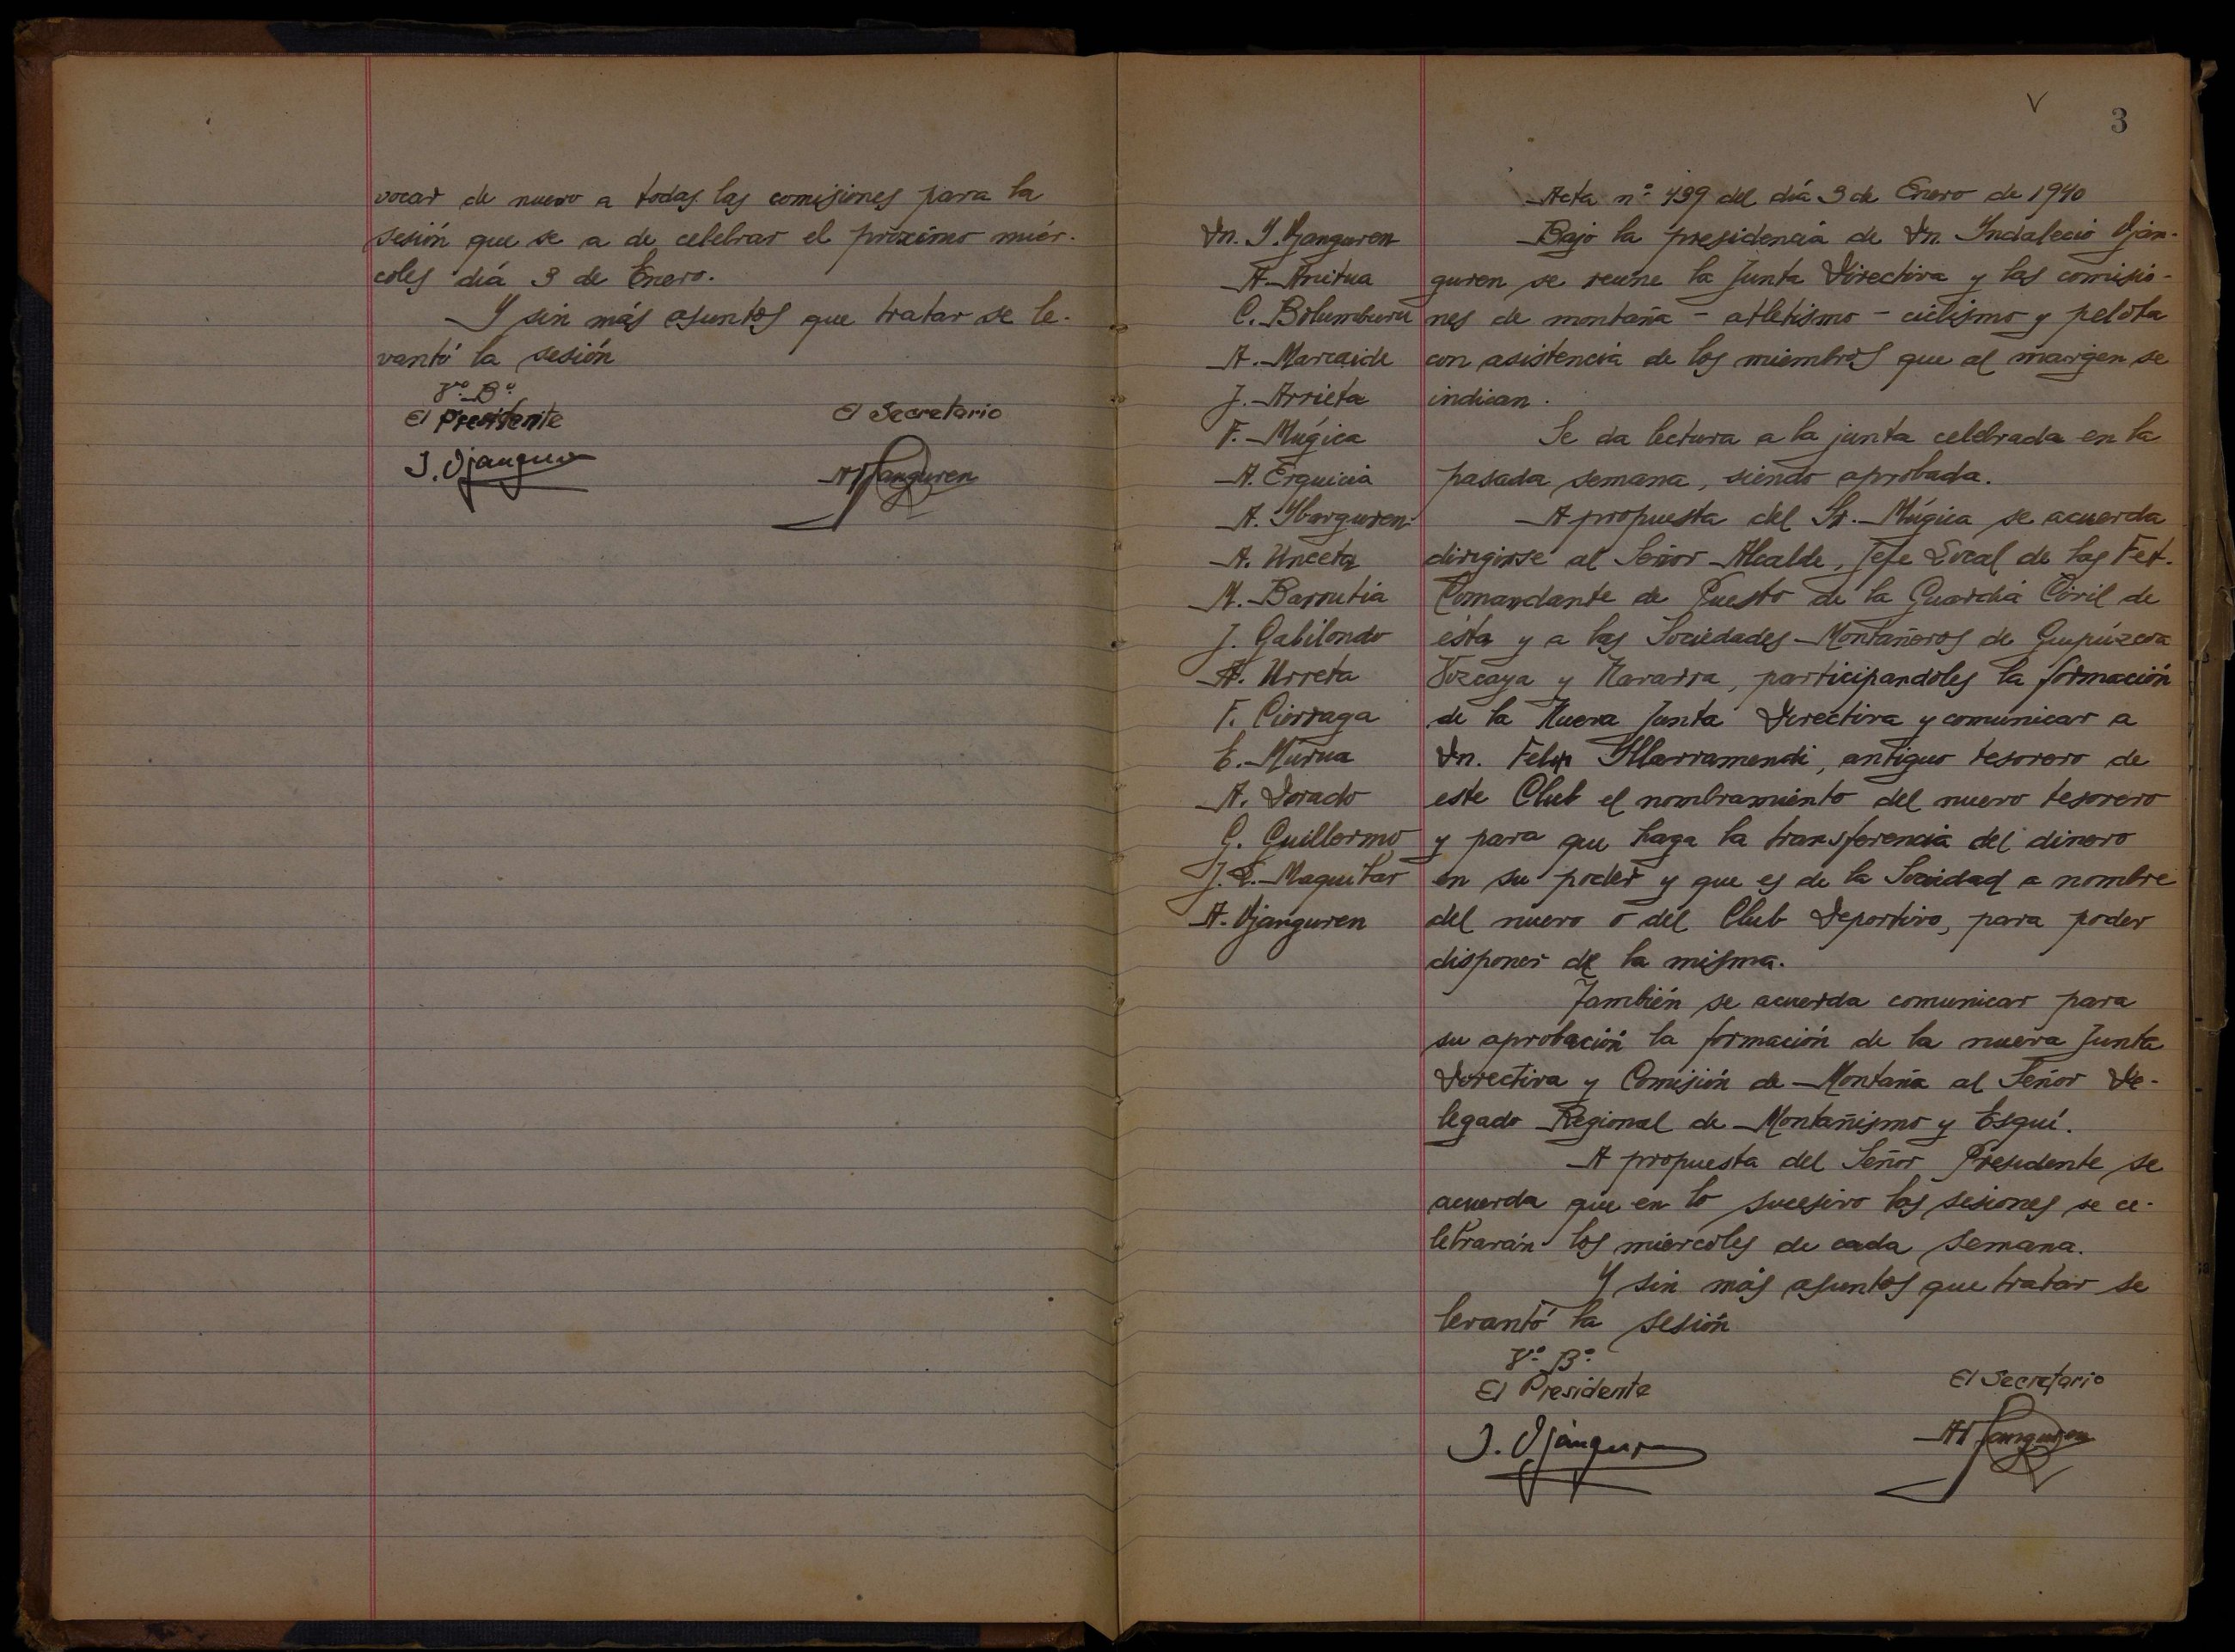 vocar de nuevo a todas las comisiones para la
sesión que se a de celebrar el próximo miér-
coles día 3 de Enero.
Y sin más asuntos que tratar se le-
vantó la sesión
Vº Bº
El Presidente
El Secretario
J. Ojanguren
A. Ojanguren
V
3
Acta nº 439 del día 3 de Enero de 1940
Dn. I. Ojanguren
A. Anitua
C. Bolumburu
A. Marcaide
J. Arrieta
F. Múgica
A. Erquicia
A. Ybarguren
A. Unceta
M. Barrutia
J. Gabilondo
A. Urreta
F. Ciorraga
E. Murua
A. Dorado
G. Guillermo
J. L. Maquibar
A. Ojanguren
Bajo la presidencia de Dn. Yndalecio Ojan-
guren se reune la Junta Directiva y las comisio-
nes de montaña - atletismo - ciclismo y pelota
con asistencia de los miembros que al margen se
indican.
Se da lectura a la junta celebrada en la
pasada semana, siendo aprobada.
A propuesta del Sr. Múgica se acuerda
dirigirse al Señor Alcalde, Jefe Local de las Fet.
Comandante de Puesto de la Guardia Civil de
ésta y a las Sociedades Montañeros de Guipúzcoa
Vizcaya y Navarra, participandoles la formación
de la Nueva Junta Directiva y comunicar a
Dn. Felix Yllarramendi, antiguo tesorero de
este Club el nombramiento del nuevo tesorero
y para que haga la transferencia del dinero
en su poder y que es de la Sociedad a nombre
del nuevo o del Club Deportivo, para poder
disponer de la misma.
También se acuerda comunicar para
su aprobación la formación de la nueva Junta
Directiva y Comisión de Montaña al Señor De-
legado Regional de Montañismo y Esquí.
A propuesta del Señor Presidente se
acuerda que en lo sucesivo las sesiones se ce-
lebrarán los miércoles de cada semana.
Y sin más asuntos que tratar se
levantó la sesión
Vº Bº
El Presidente
El Secretario
J. Ojanguren
A. Ojanguren